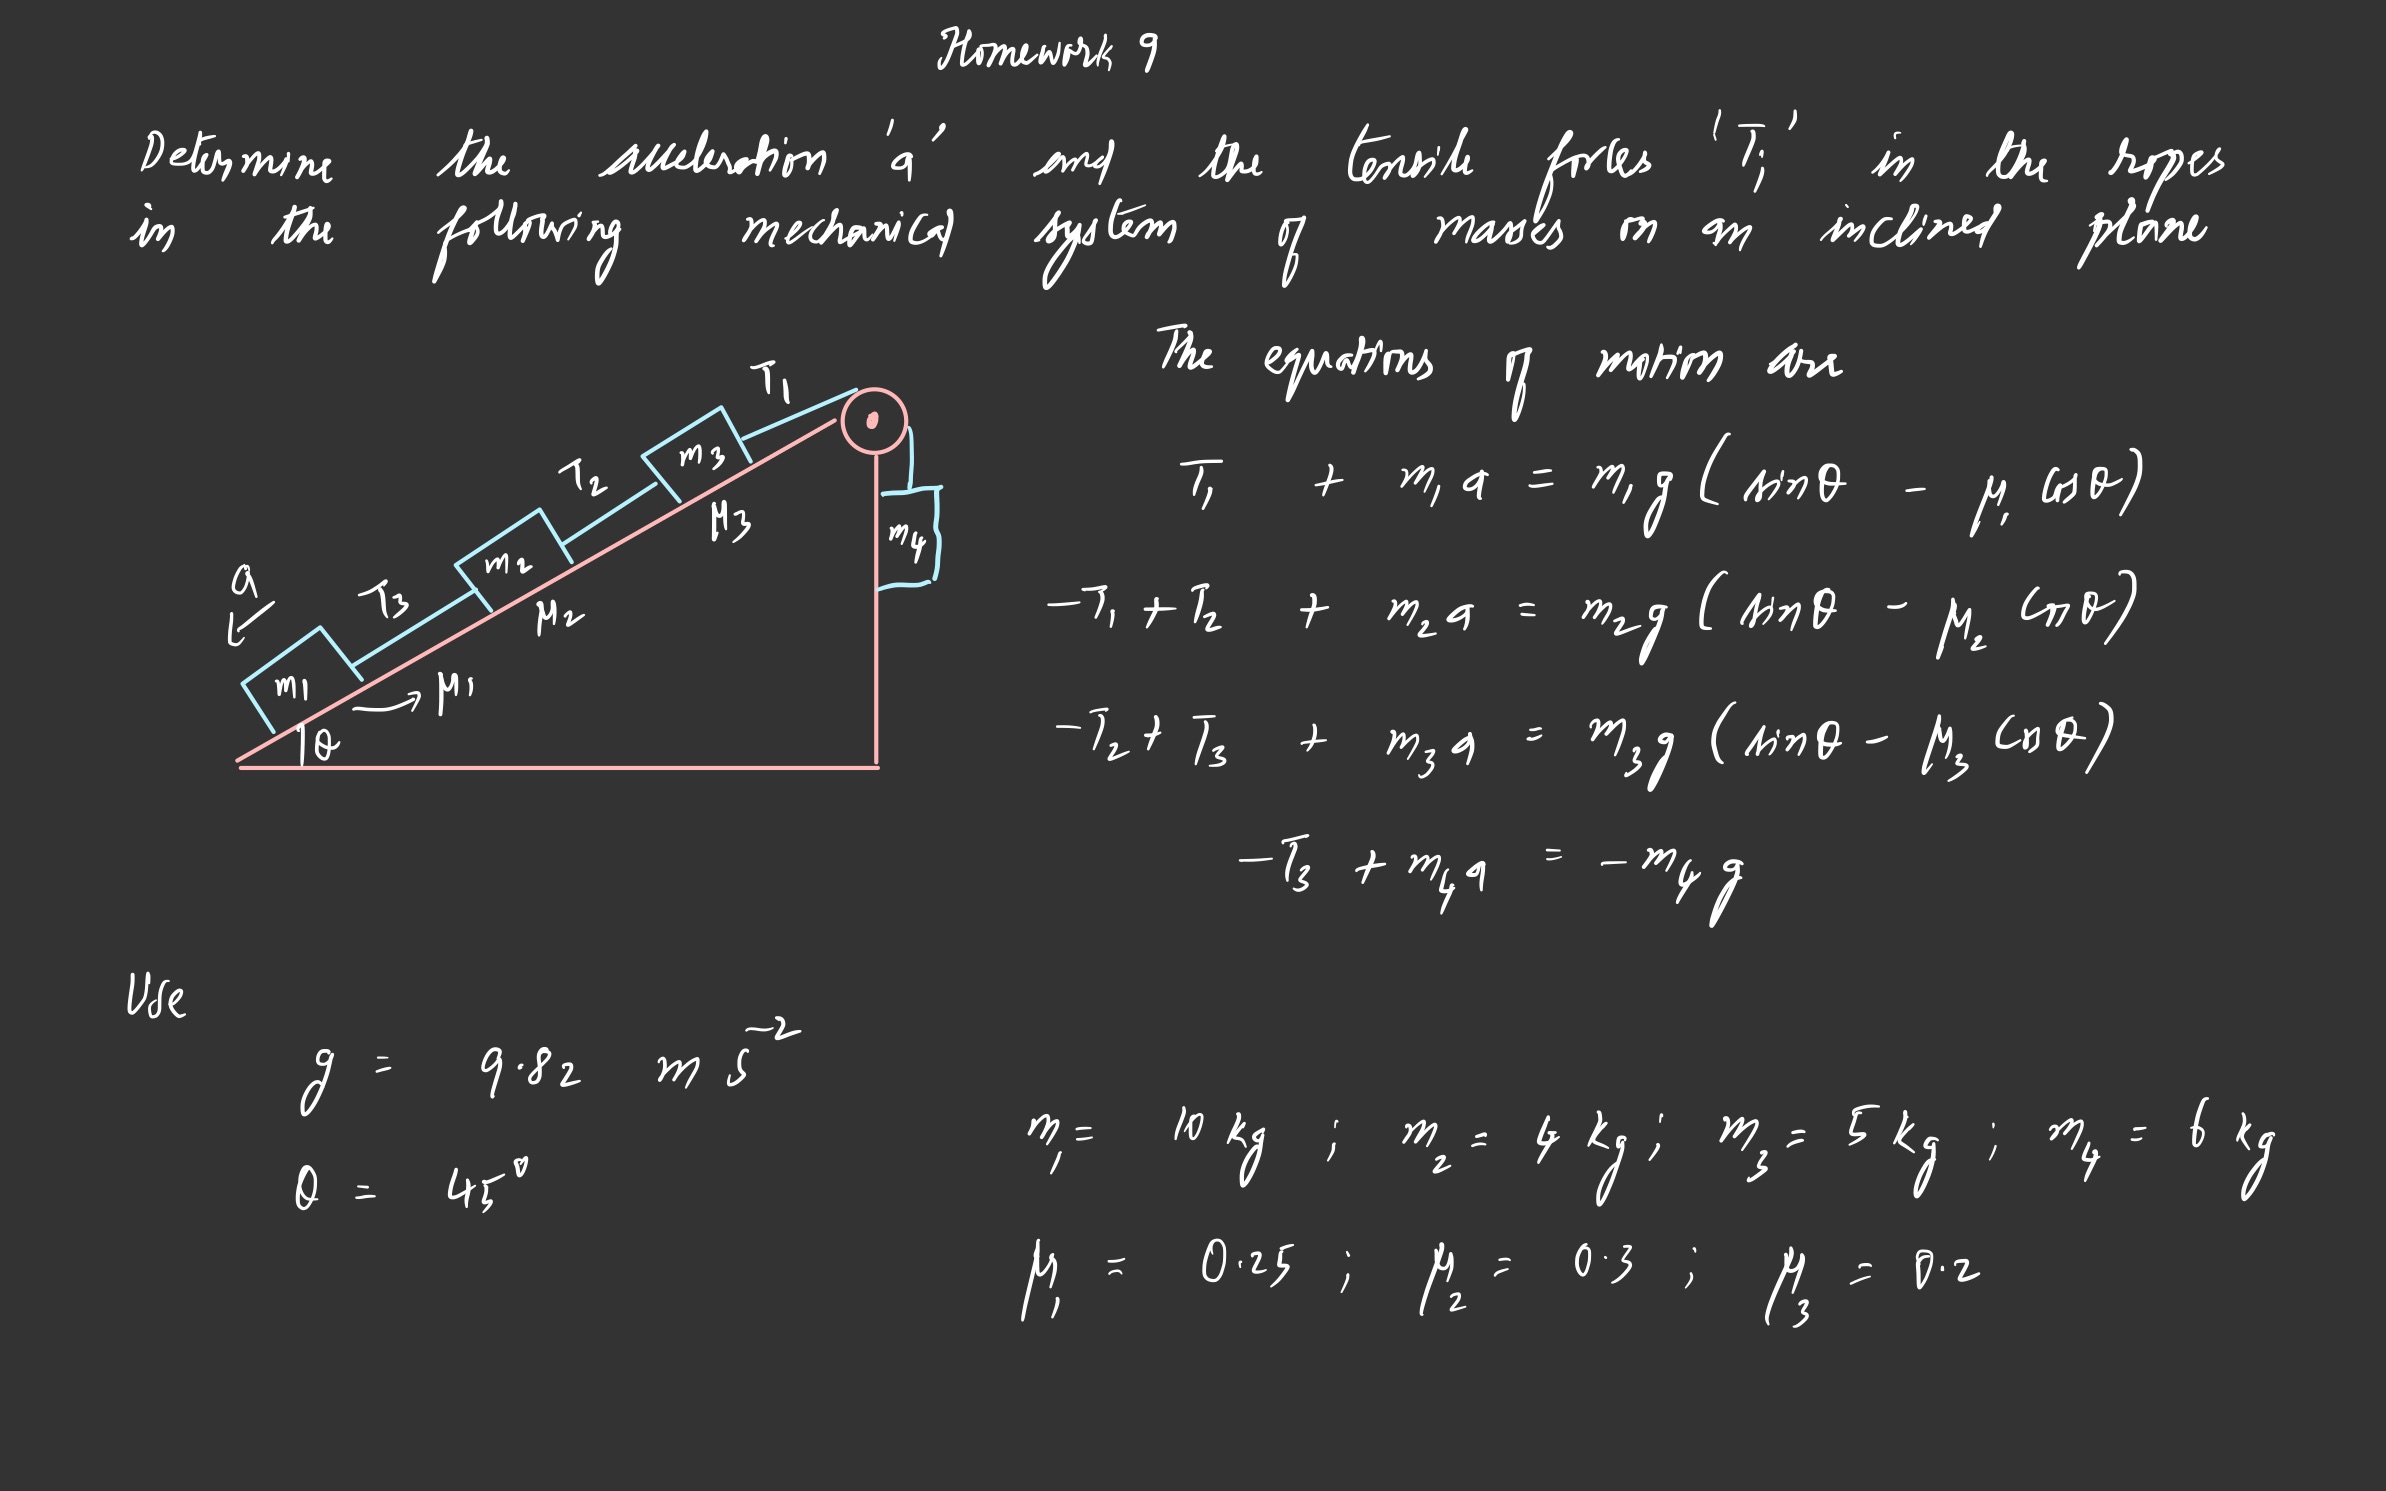 Homework 9
Determine the acceleration 'a' and the tensile forces 'Ti' in the ropes
in the following mechanical system of masses on an inclined plane
The equations of motion are
T1
T1 + m1 a = m1 g (sinθ - μ1 cosθ)
T2
m3
μ3
m4
-T1 + T2 + m2 a = m2 g (sinθ - μ2 cosθ)
a
T3
m2
μ2
-T2 + T3 + m3 a = m3 g (sinθ - μ3 cosθ)
m1
μ1
θ
-T3 + m4 a = -m4 g
Use
g = 9.82 m s^-2
m1 = 10 kg ; m2 = 4 kg ; m3 = 5 kg ; m4 = 6 kg
θ = 45°
μ1 = 0.25 ; μ2 = 0.3 ; μ3 = 0.2